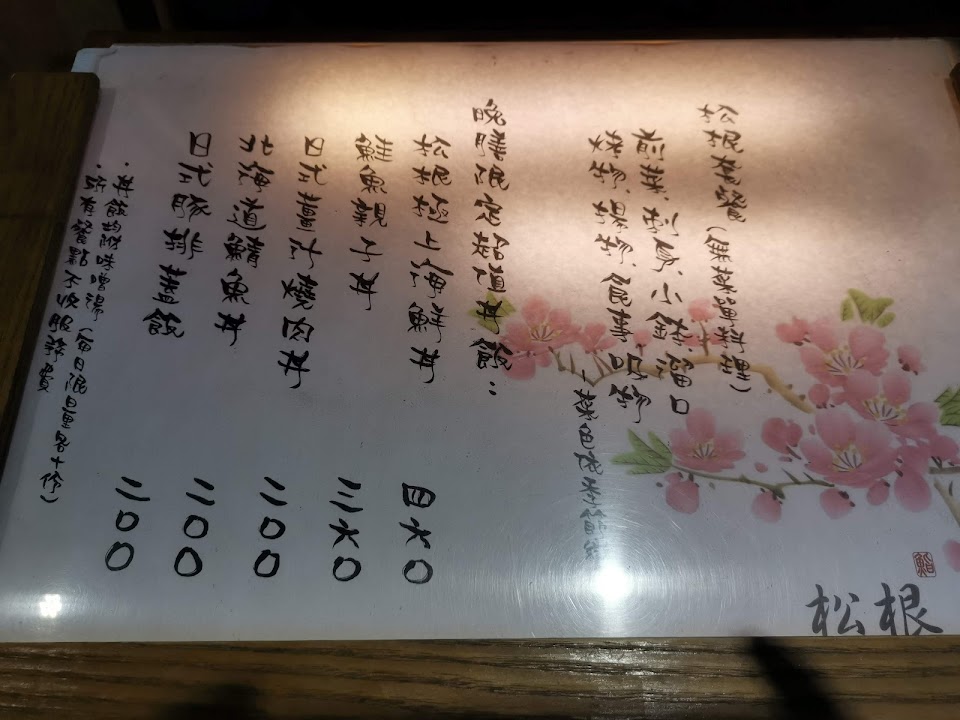 松根套餐(無菜單料理)
前菜、刺身、小鉢、溜口
燒物、揚物、食事、吸物
菜色依季節
晚膳限定超值丼飯:
松根極上海鮮丼 四六〇
鮭魚親子丼 三六〇
日式薑汁燒肉丼 二〇〇
北海道鯖魚丼 二〇〇
日式豚排蓋飯 二〇〇
·丼飯均附味噌湯(每日限量各十份)
·所有餐點不收服務費
鮨
松根